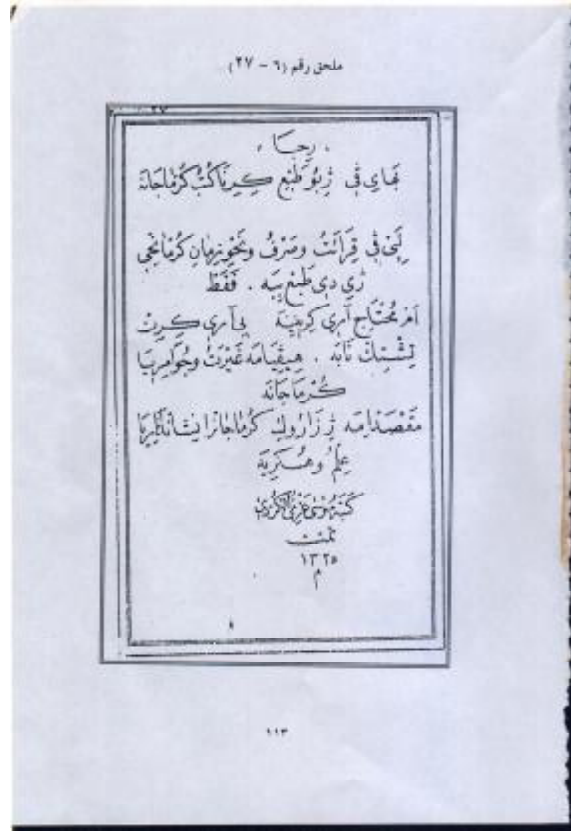 ملحق رقم (٦ - ٢٧)
٢٧
رجا
بهاى فى ژبو طبع كرنا كتب كرماجانه
لبى فى قرائت وصرف ونحو زمان كرمانجى
ژى دى طبع ببه . فقط
ام محتاج آرى كرينه بى آرى كرن
تشتك نابه . هيڤيا مه غيرت وجوامريا
كرماجانه
مقصدا مه ژ زاروك كرماجانرا نشاندانا ريا
علم وهنرى يه
كتبه
تمت
١٣٢٥
م
١١٣